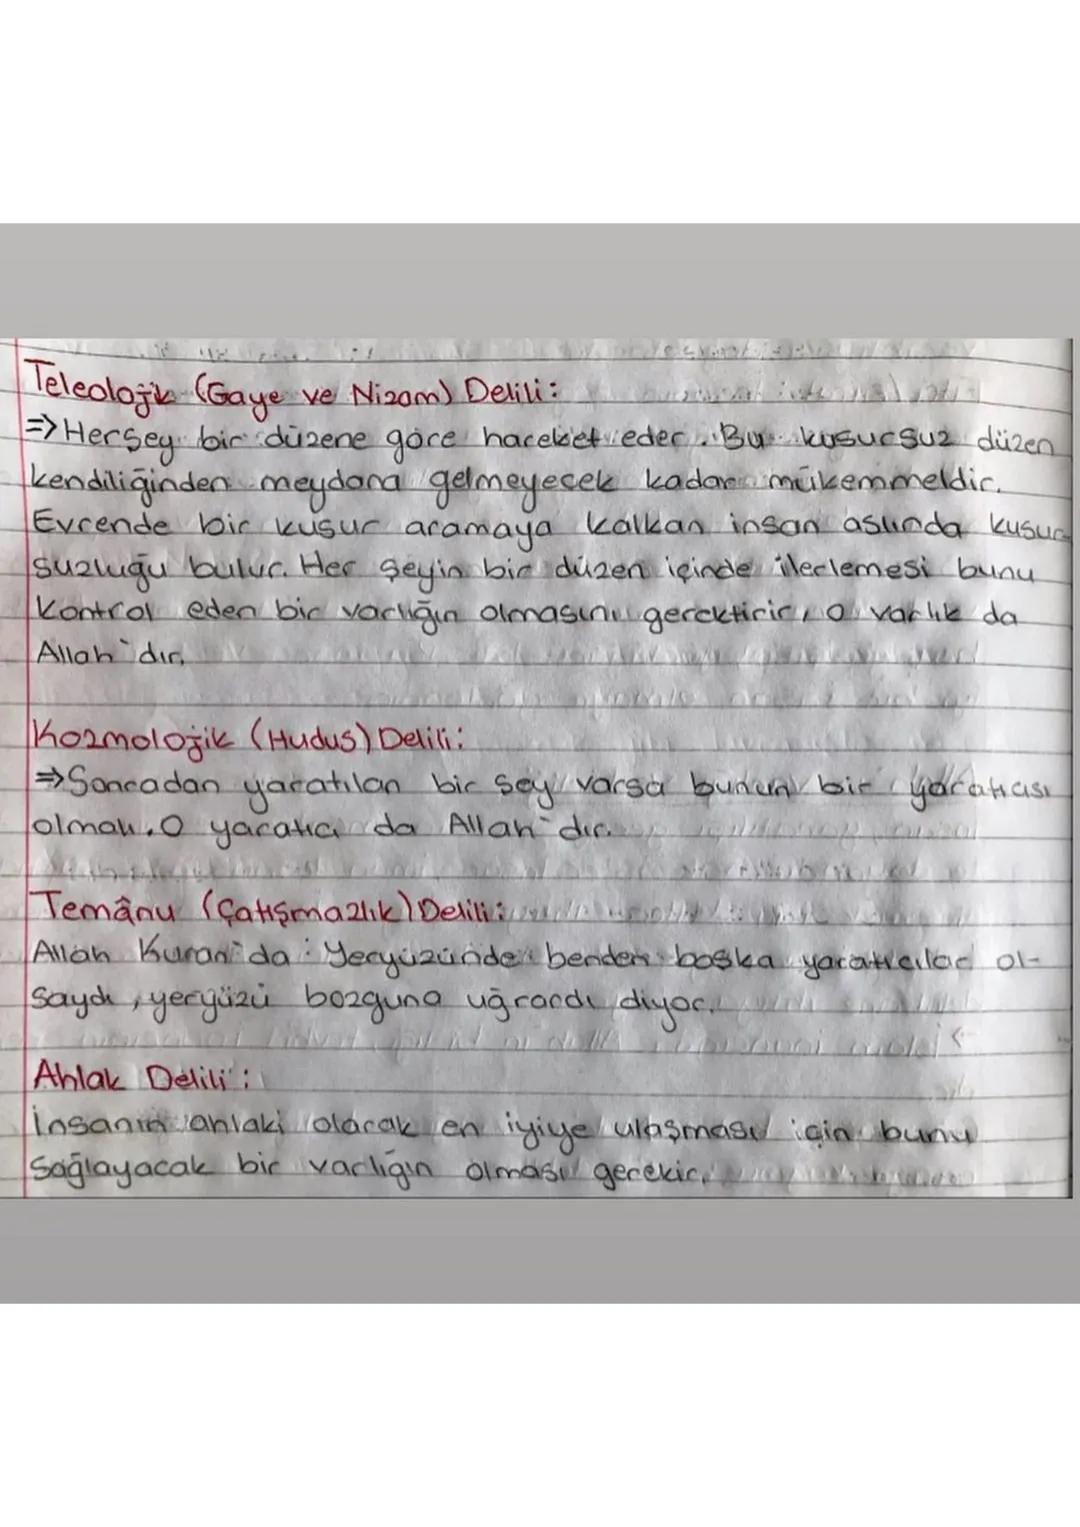 Teleolojik (Gaye ve Nizam) Delili:
⇒Herşey bir düzene göre hareket eder. Bu kusursuz düzen
kendiliğinden meydana gelmeyecek kadar mükemmeldir.
Evrende bir kusur aramaya kalkan insan aslında kusur
suzluğu bulur. Her şeyin bir düzen içinde ilerlemesi bunu
kontrol eden bir varlığın olmasını gerektirir, o varlık da
Allah'dır.
Kozmolojik (Hudus) Delili:
⇒Sonradan yaratılan bir şey varsa bunun bir yaratıcısı
olmalı. O yaratıcı da Allah'dır.
Temânu (Çatışmazlık) Delili:
Allah Kuran'da: Yeryüzünde benden başka yaratıcılar ol-
saydı, yeryüzü bozguna uğrardı diyor.
Ahlak Delili:
İnsanın ahlaki olarak en iyiye ulaşması için bunu
sağlayacak bir varlığın olması gerekir.